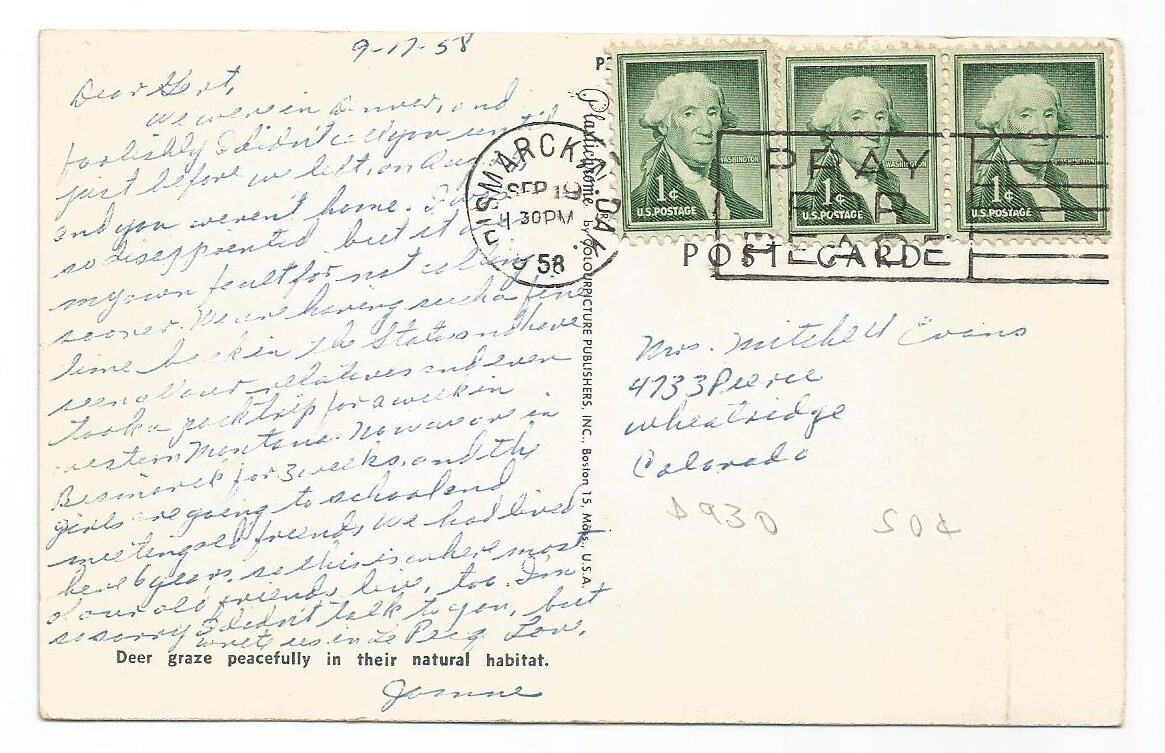 9-17-58
Dear Gert,
We were in Denver, and
foolishly I didn't call you until
just before we left, on Aug
and you weren't home. I was
so disappointed but it was
my own fault for not calling
sooner. We are having such a fine
time back in the States and have
seen all our relatives and even
took a pack trip for a week in
western Montana. Now we are in
Bismarck for 3 weeks, and the
girls are going to school and
meeting old friends. We had lived
here 6 years, so this is where most
of our old friends live, too. I'm
so sorry I didn't talk to you, but
write us in Le Pecq. Love,
Deer graze peacefully in their natural habitat.
Joanne
Plastichrome by COLOURPICTURE PUBLISHERS, INC., Boston 15, Mass., U.S.A.
BISMARCK, N. DAK.
SEP 19
4 30PM
1958
WASHINGTON
1¢
U.S. POSTAGE
WASHINGTON
1¢
U.S. POSTAGE
WASHINGTON
1¢
U.S. POSTAGE
PRAY
FOR
PEACE
POST CARD
Mrs. Mitchell Evans
4733 Pierce
Wheatridge
Colorado
A930
50¢